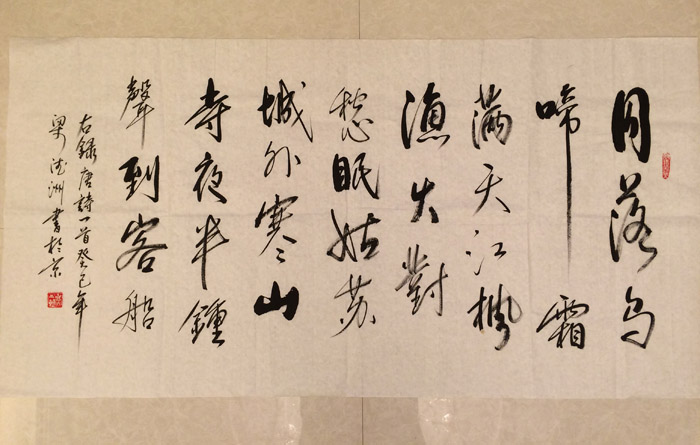 月落乌
啼霜
满天江枫
渔火對
愁眠姑苏
城外寒山
寺夜半鍾
聲到客船
右録唐詩一首癸巳年
梁洸洲書於京